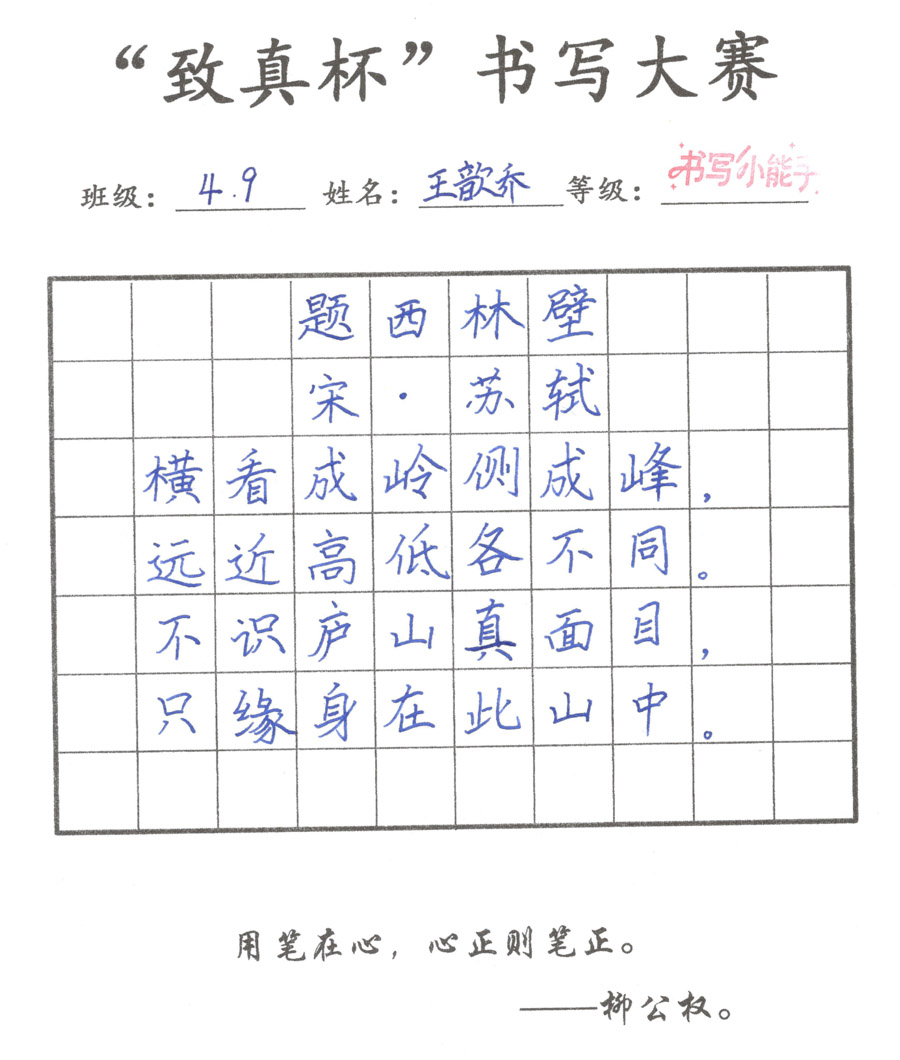 “致真杯”书写大赛
班级： 4.9 姓名： 王歆乔 等级： 书写小能手
题西林壁
宋·苏轼
横看成岭侧成峰，
远近高低各不同。
不识庐山真面目，
只缘身在此山中。
用笔在心，心正则笔正。
——柳公权。